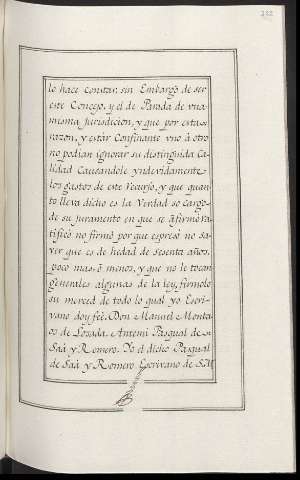 222
lo hace constar, sin Embargo de ser
este Concejo, y el de Parada de vna
misma Jurisdicion, y que por esta
razon, y estàr Confinante vno â otro
no podian ignorar su distinguida Ca-
lidad Causandole yndevidamente
los gastos de este Recurso, y que quan
to lleva dicho es la Verdad so cargo
de su juramento en que se âfirmo ra
tificò no firmò por que expresò no sa
ver que es de hedad de sesenta años,
poco mas, ô menos, y que no le tocan
generales algunas de la ley, firmolo
su merced de todo lo qual yo Escri-
vano doy feè. Don Manuel Monta
os de Losada. Antemi Pasqual de
Saà y Romero. Yo el dicho Pasqual
de Saà y Romero Escrivano de S.M